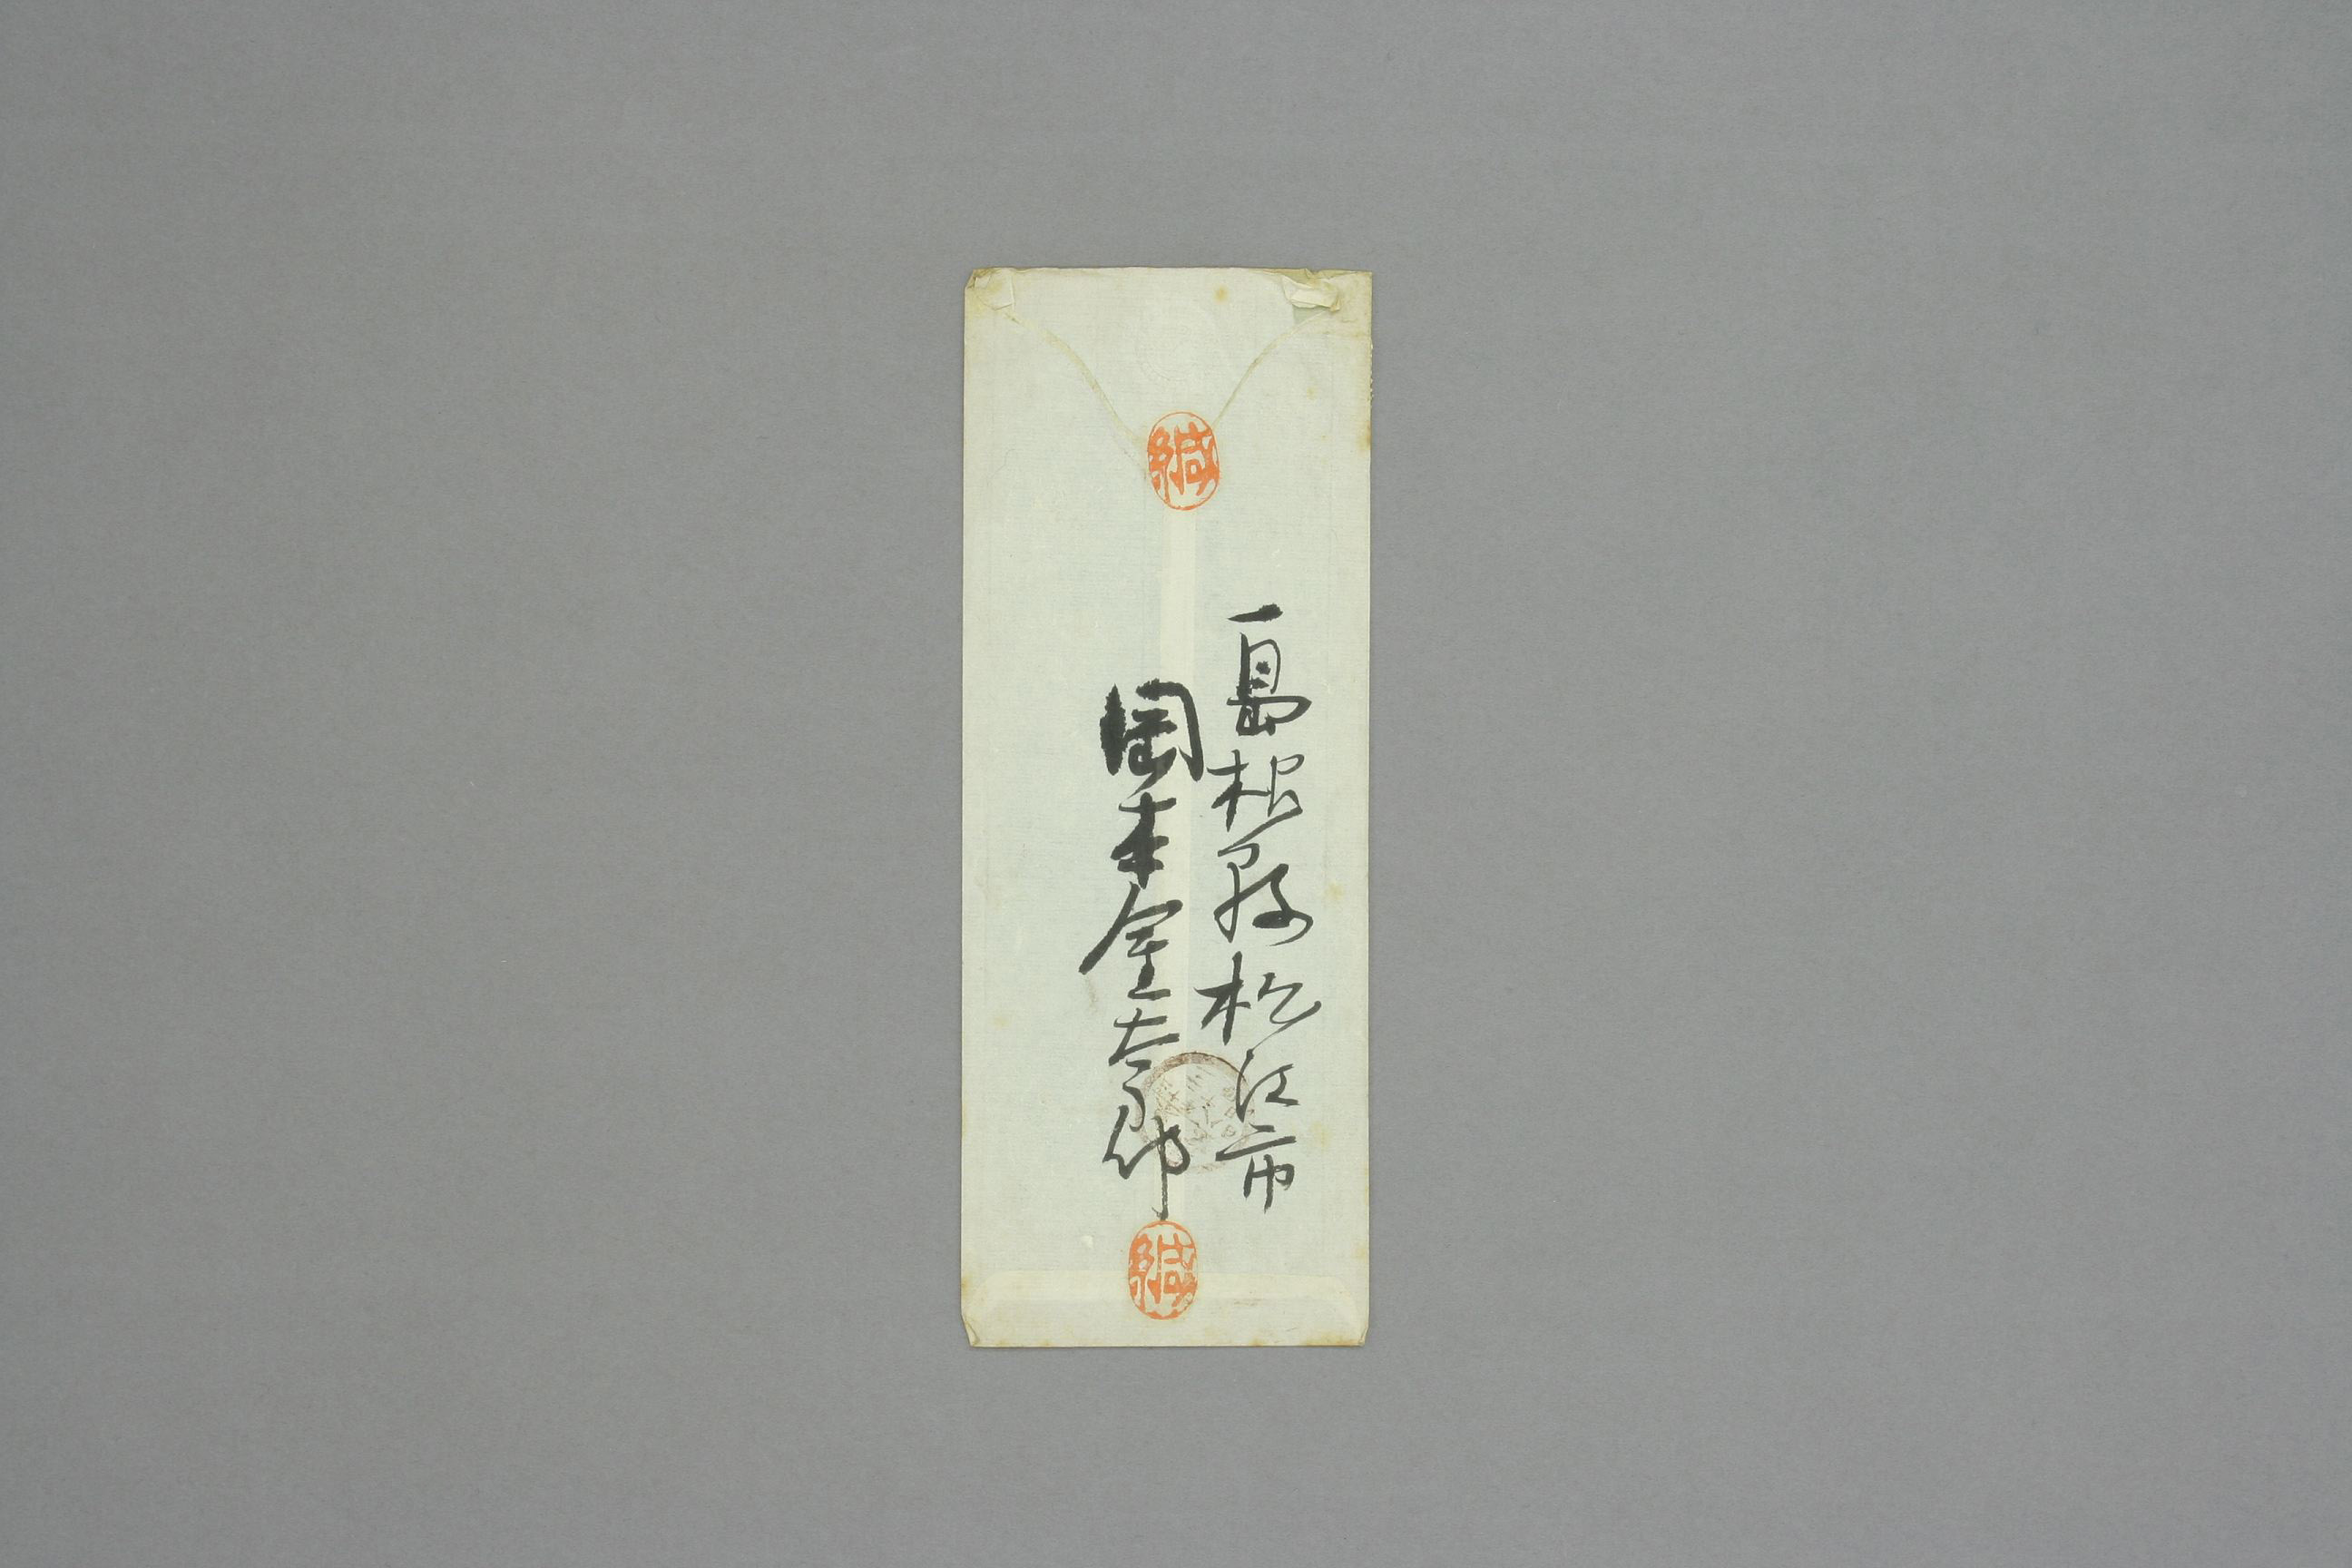 緘
島根県松江市
岡本金太郎
緘